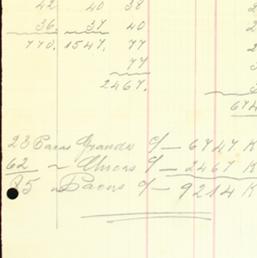 42 40 38 2
36 37 40
770. 1547. 77
77
2467.
674
23 Pacas Grandes c/— 6747 K
62 " Chicas c/— 2467 K
85 " Pacas c/— 9214 K